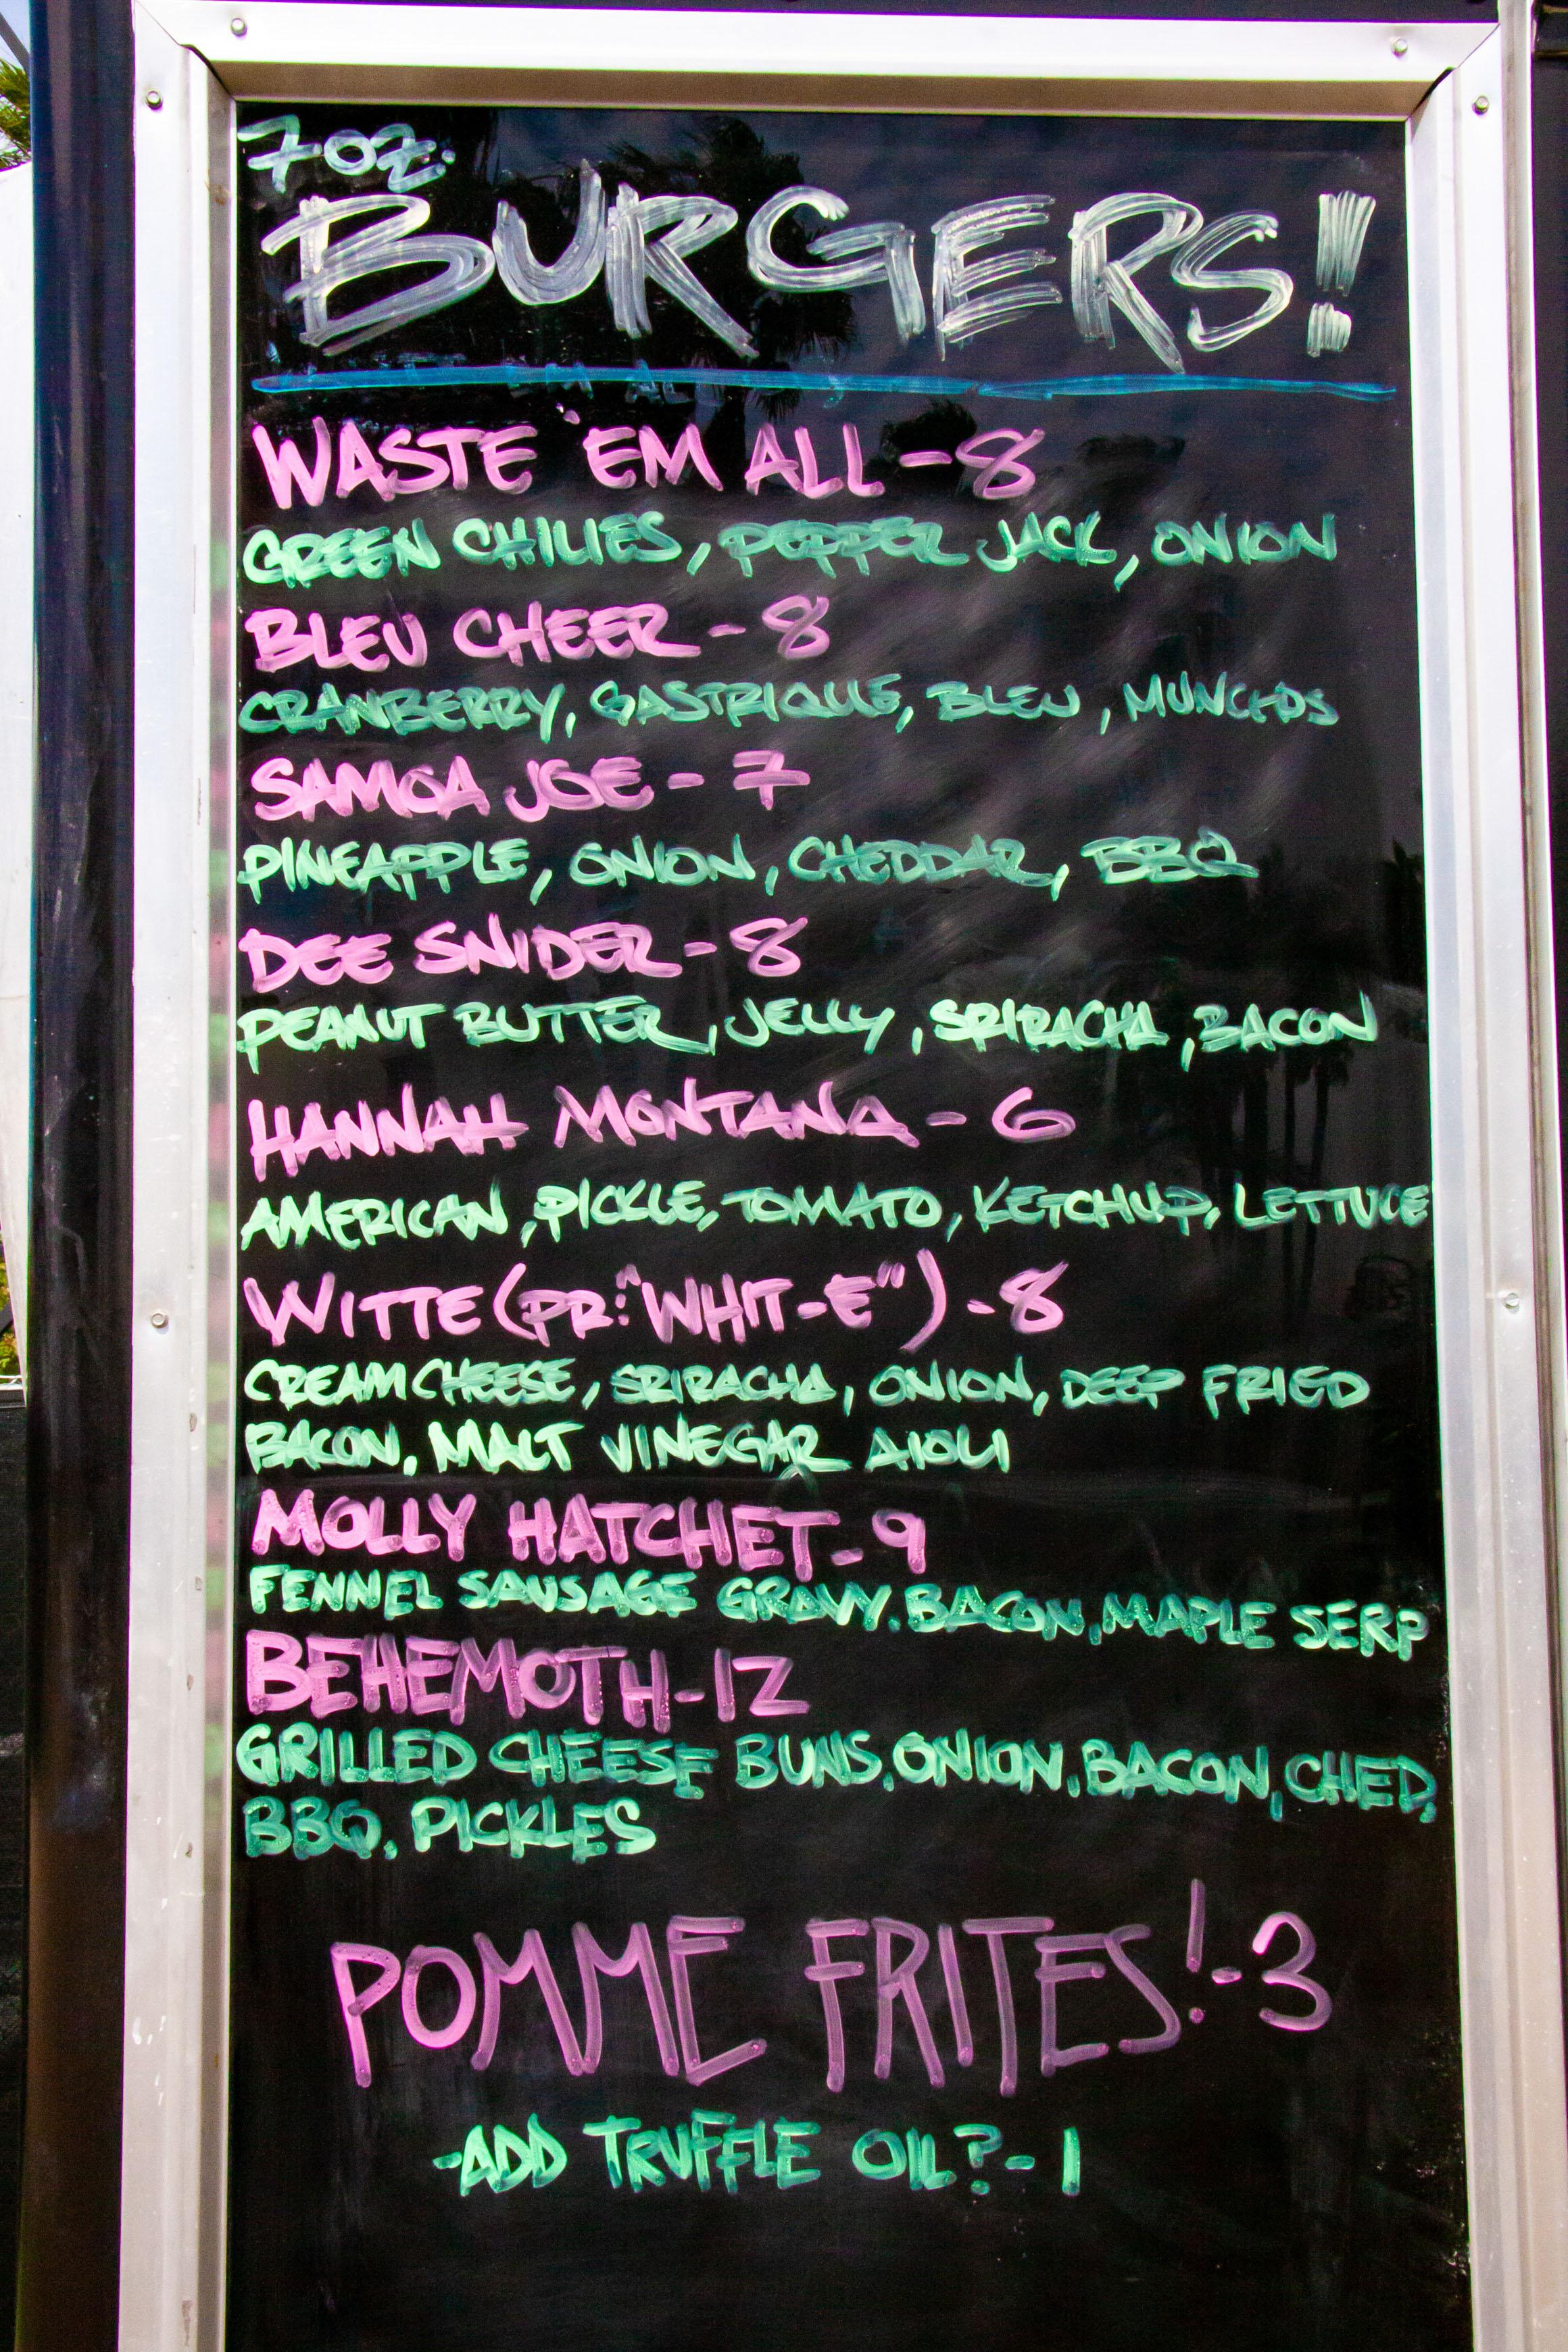 7oz.
BURGERS!
WASTE 'EM ALL - 8
GREEN CHILIES, PEPPER JACK, ONION
BLEU CHEER - 8
CRANBERRY, GASTRIQUE, BLEU, MUNCHOS
SAMOA JOE - 7
PINEAPPLE, ONION, CHEDDAR, BBQ
DEE SNIDER - 8
PEANUT BUTTER, JELLY, SRIRACHA, BACON
HANNAH MONTANA - 6
AMERICAN, PICKLE, TOMATO, KETCHUP, LETTUCE
WITTE (PR: "WHIT-E") - 8
CREAM CHEESE, SRIRACHA, ONION, DEEP FRIED
BACON, MALT VINEGAR AIOLI
MOLLY HATCHET - 9
FENNEL SAUSAGE GRAVY, BACON, MAPLE SERP
BEHEMOTH - 12
GRILLED CHEESE BUNS, ONION, BACON, CHED,
BBQ, PICKLES
POMME FRITES! - 3
- ADD TRUFFLE OIL? - 1